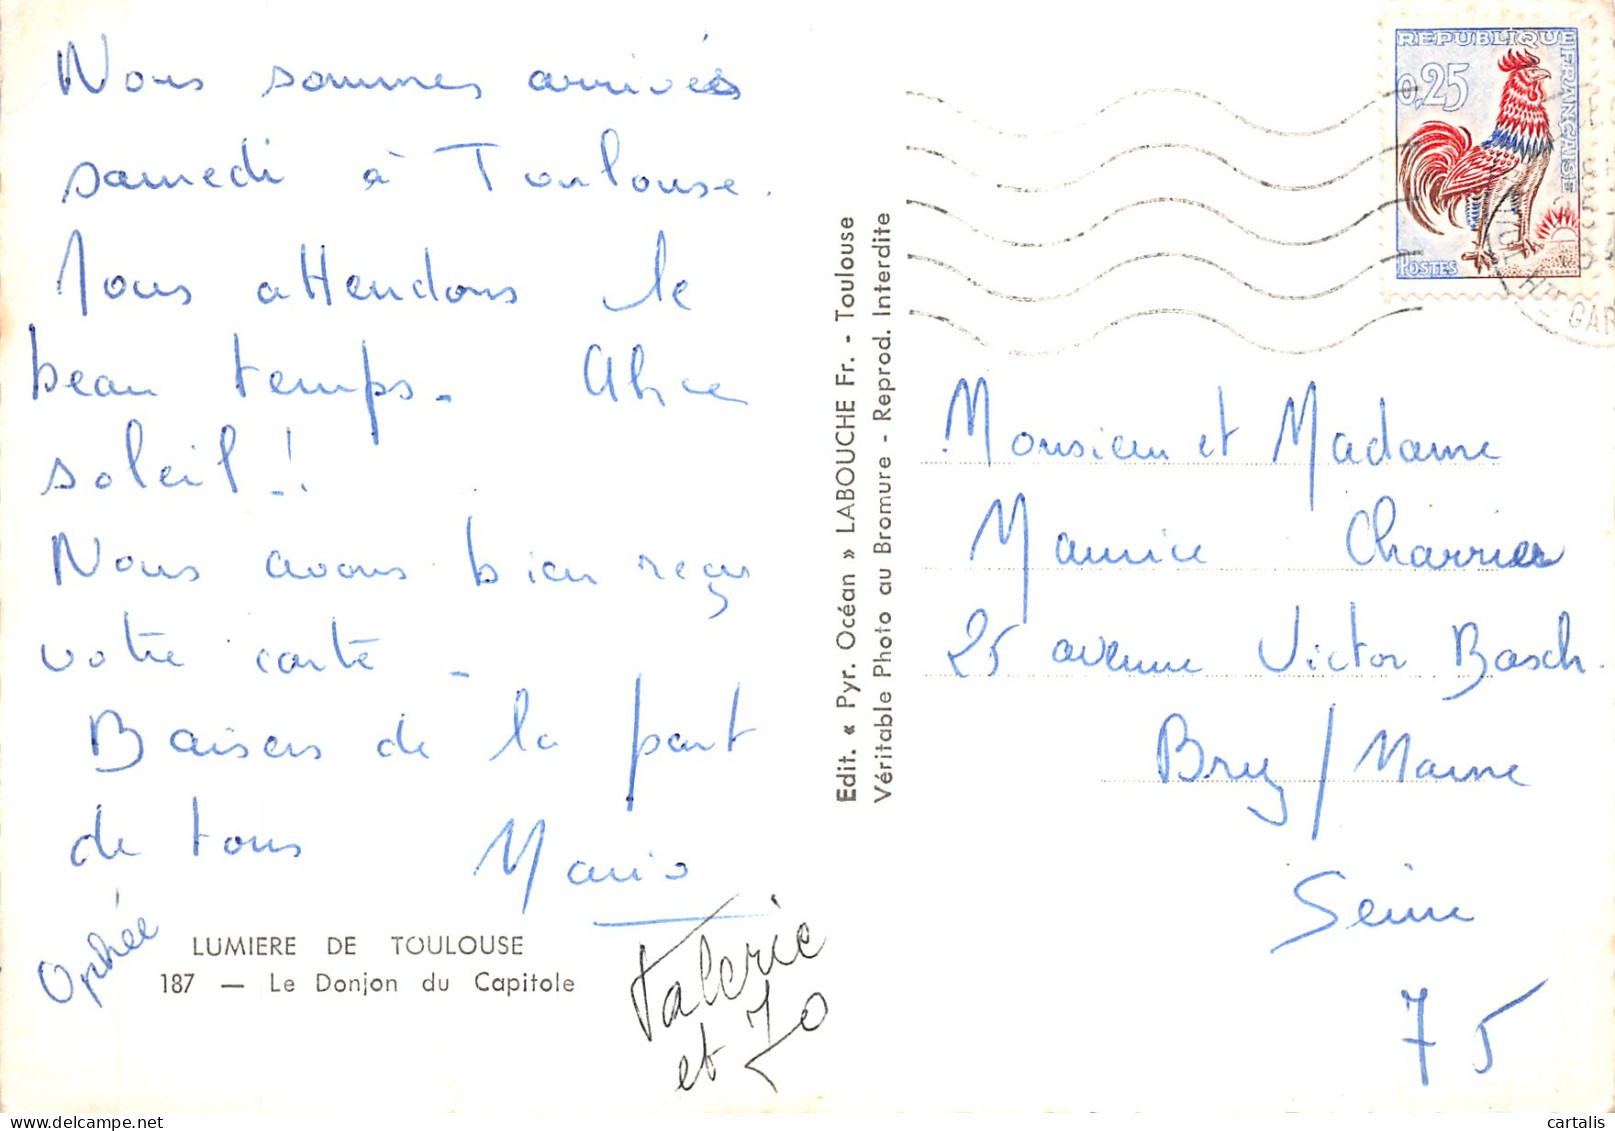 Nous sommes arrivés
samedi à Toulouse.
Nous attendons le
beau temps. Alice
soleil !
Nous avons bien reçu
votre carte -
Baisers de la part
de tous Mario
Ophée
LUMIERE DE TOULOUSE
187 — Le Donjon du Capitole
Valerie
et Zo
Edit. « Pyr. Océan » LABOUCHE Fr. - Toulouse
Véritable Photo au Bromure - Reprod. Interdite
REPUBLIQUE FRANÇAISE
0,25
POSTES
Hte GAR
Monsieur et Madame
Maurice Charrier
25 avenue Victor Basch.
Bry / Marne
Seine
75
cartalis